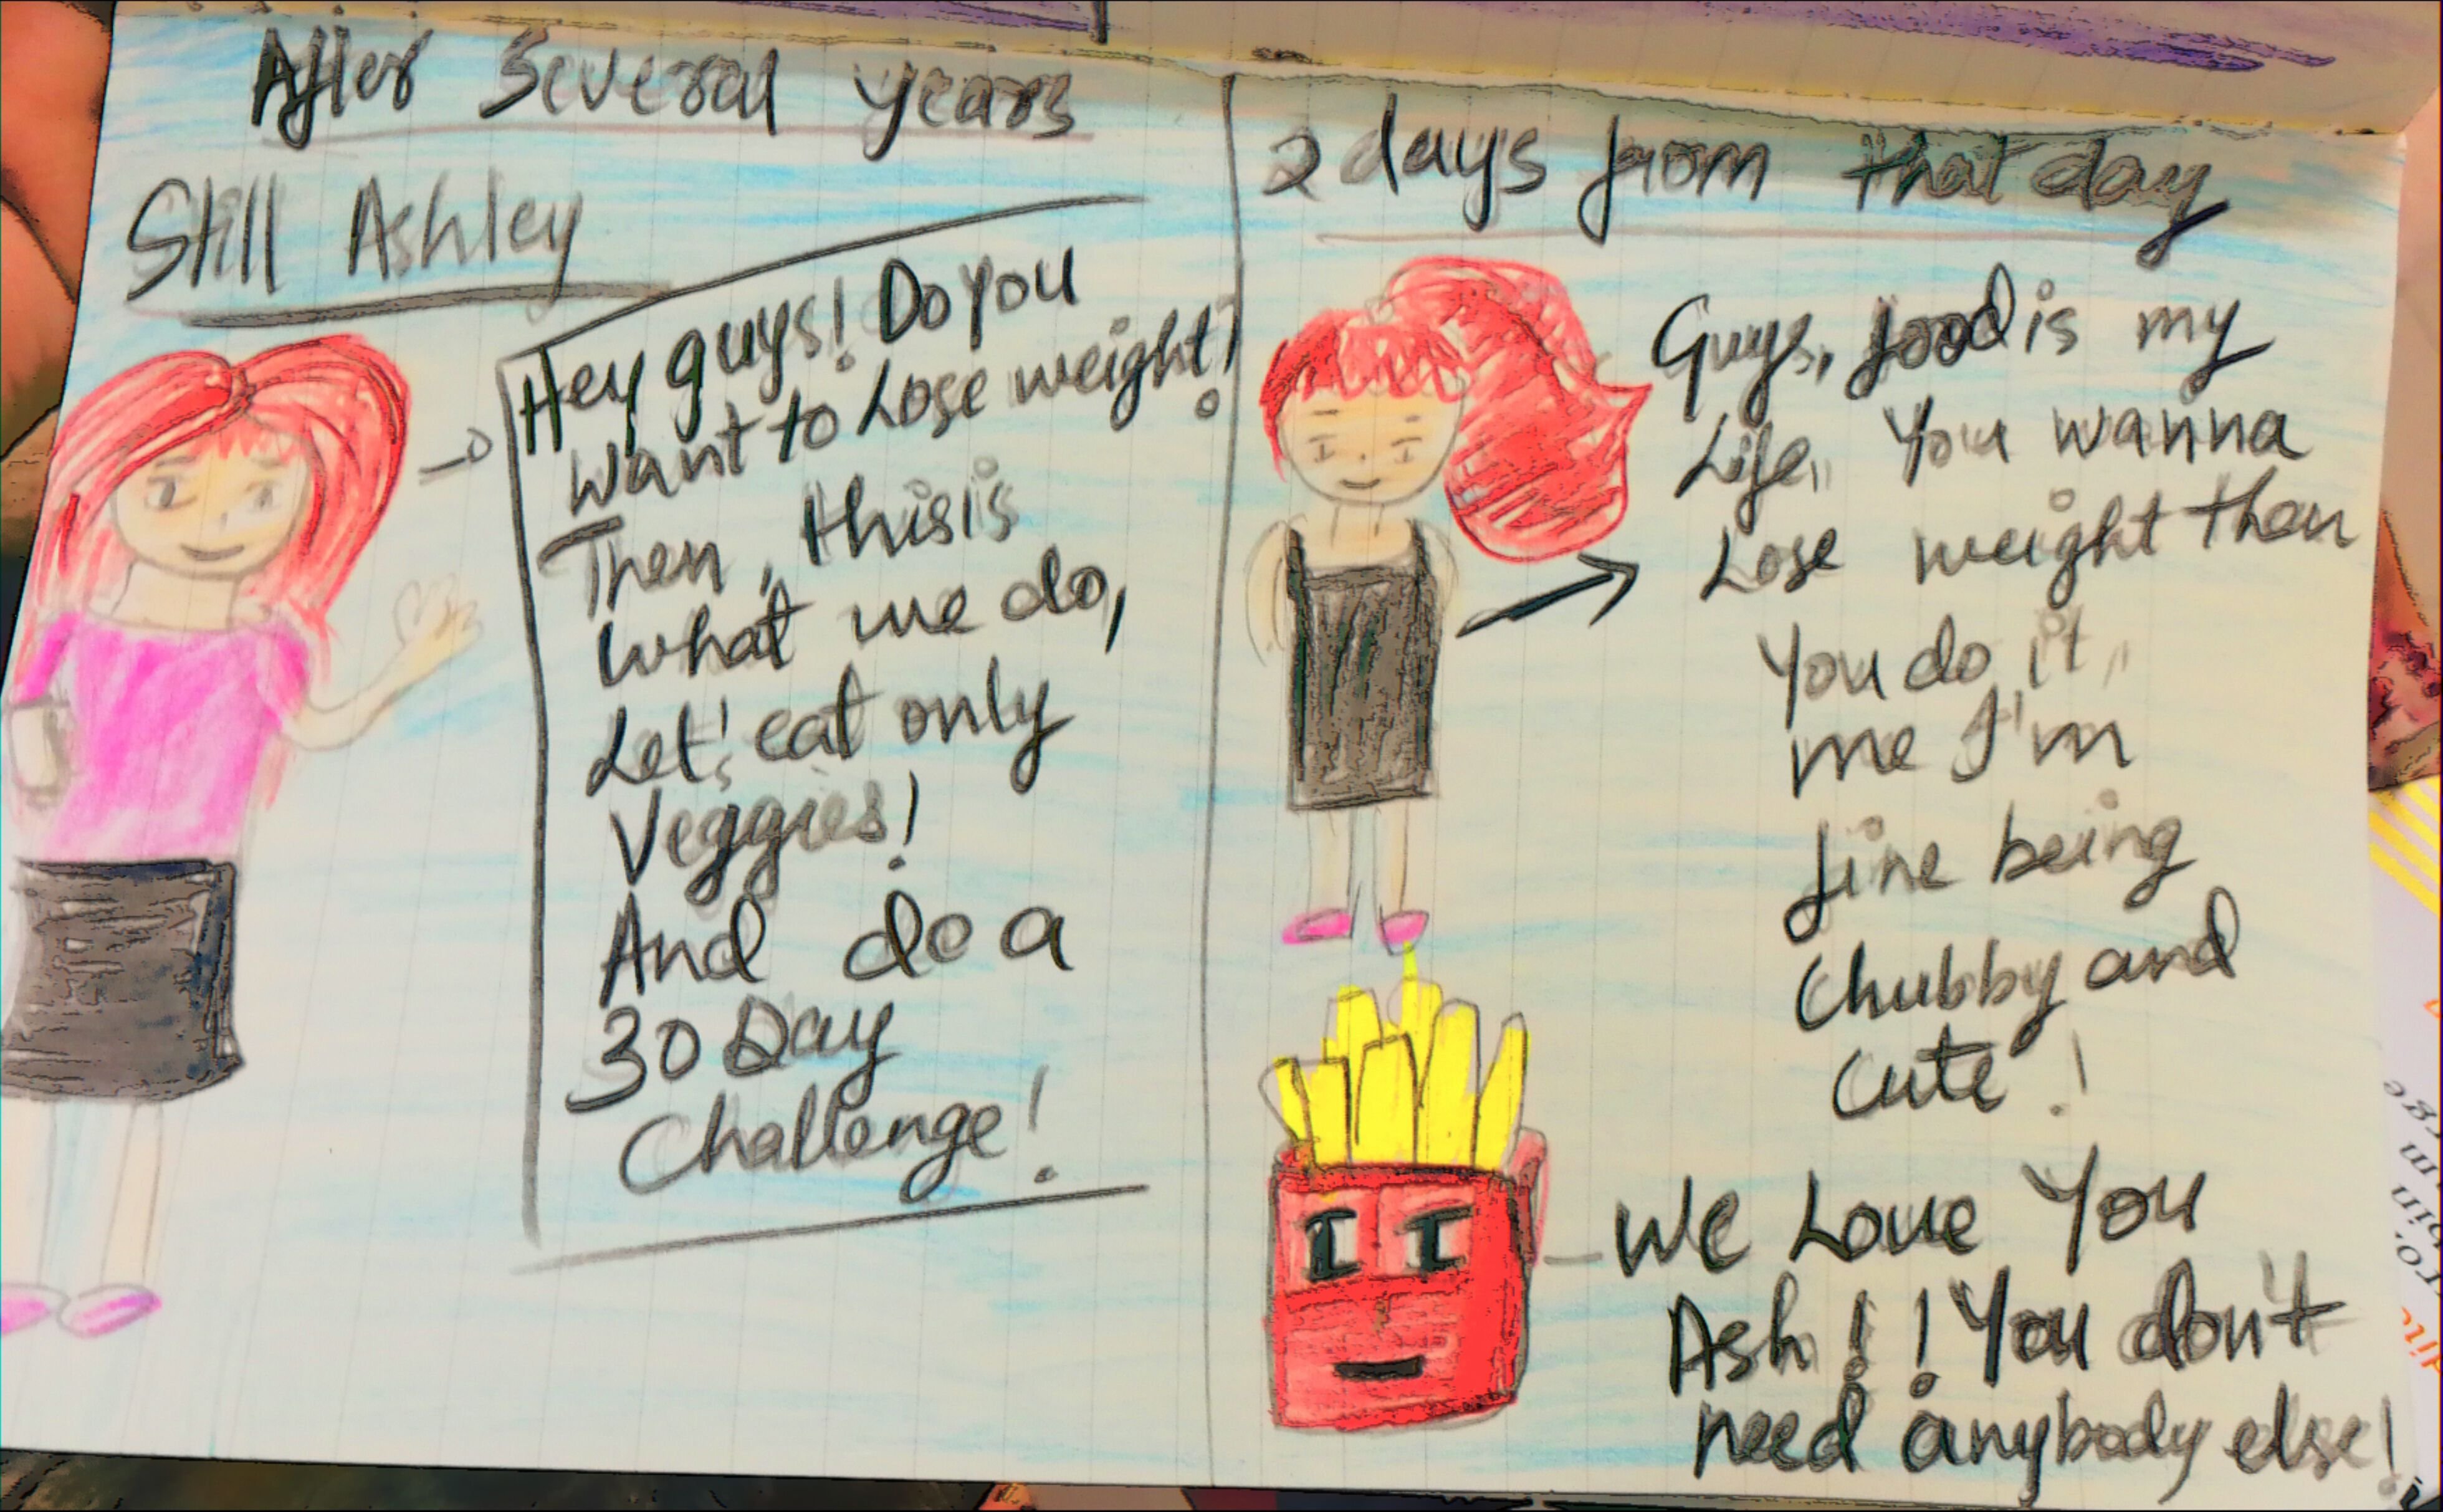 After Several years
Still Ashley
Hey guys! Do you
Want to Lose weight!
Then, this is
what we do,
Let's eat only
Veggies!
And do a
30 Day
Challenge!
2 days from that day
Guys, food is my
Life,, You wanna
Lose weight then
You do it,,
me I'm
fine being
Chubby and
cute!
We Love You
Ash!! You don't
need anybody else!